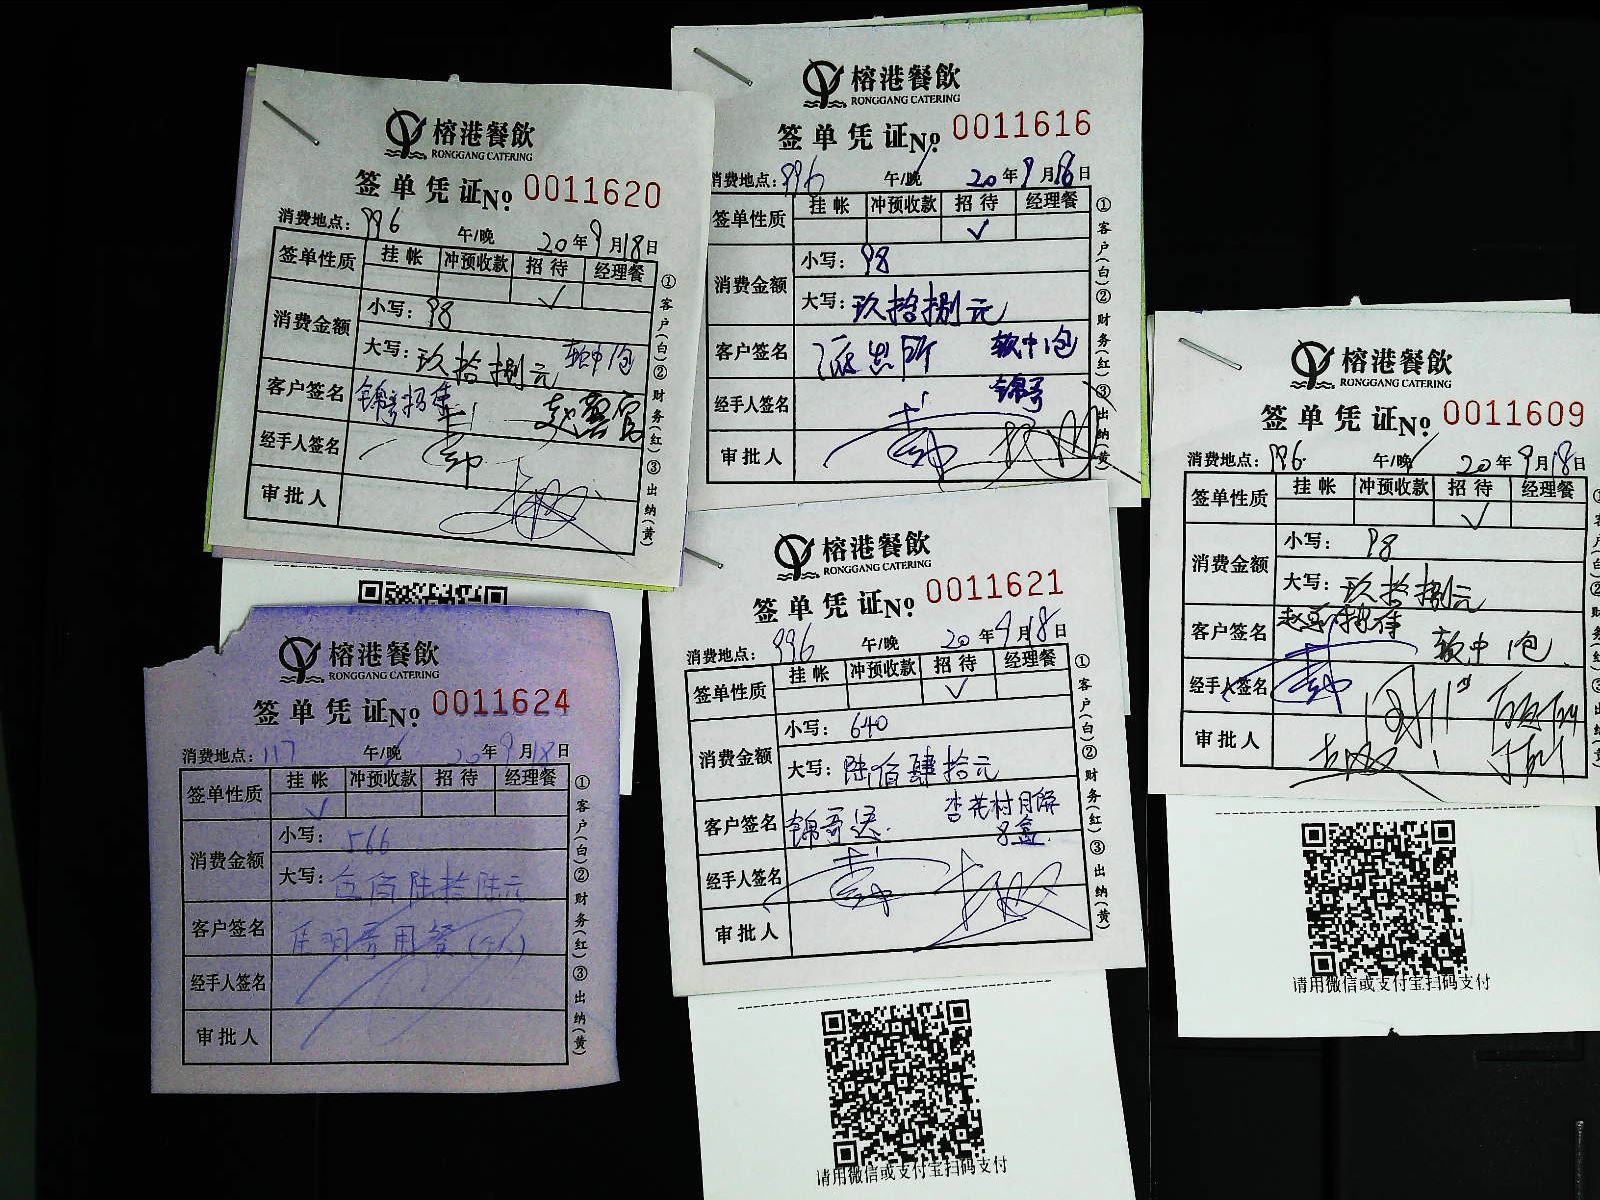 榕港餐飲
RONGGANG CATERING
签单凭证No: 0011620
消费地点: 996 午/晚 20年9月18日
签单性质 挂帐 冲预收款 招待 经理餐
✓
消费金额 小写: 98
大写: 玖拾捌元 软中1包
客户签名 锦哥招待
经手人签名
审批人
①客户(白)②财务(红)③出纳(黄)
榕港餐飲
RONGGANG CATERING
签单凭证No: 0011616
消费地点: 996 午/晚 20年9月18日
签单性质 挂帐 冲预收款 招待 经理餐
✓
消费金额 小写: 98
大写: 玖拾捌元
客户签名 派出所 软中1包
经手人签名 锦哥
审批人
①客户(白)②财务(红)③出纳(黄)
榕港餐飲
RONGGANG CATERING
签单凭证No: 0011609
消费地点: 996 午/晚 20年9月18日
签单性质 挂帐 冲预收款 招待 经理餐
✓
消费金额 小写: 98
大写: 玖拾捌元
客户签名 招待 软中1包
经手人签名
审批人
请用微信或支付宝扫码支付
榕港餐飲
RONGGANG CATERING
签单凭证No: 0011624
消费地点: 117 午/晚 20年9月18日
签单性质 挂帐 冲预收款 招待 经理餐
✓
消费金额 小写: 566
大写: 伍佰陆拾陆元
客户签名 用餐(个人)
经手人签名
审批人
①客户(白)②财务(红)③出纳(黄)
榕港餐飲
RONGGANG CATERING
签单凭证No: 0011621
消费地点: 996 午/晚 20年9月18日
签单性质 挂帐 冲预收款 招待 经理餐
✓
消费金额 小写: 640
大写: 陆佰肆拾元
客户签名 锦哥送. 杏花村月饼
8盒.
经手人签名
审批人
①客户(白)②财务(红)③出纳(黄)
请用微信或支付宝扫码支付